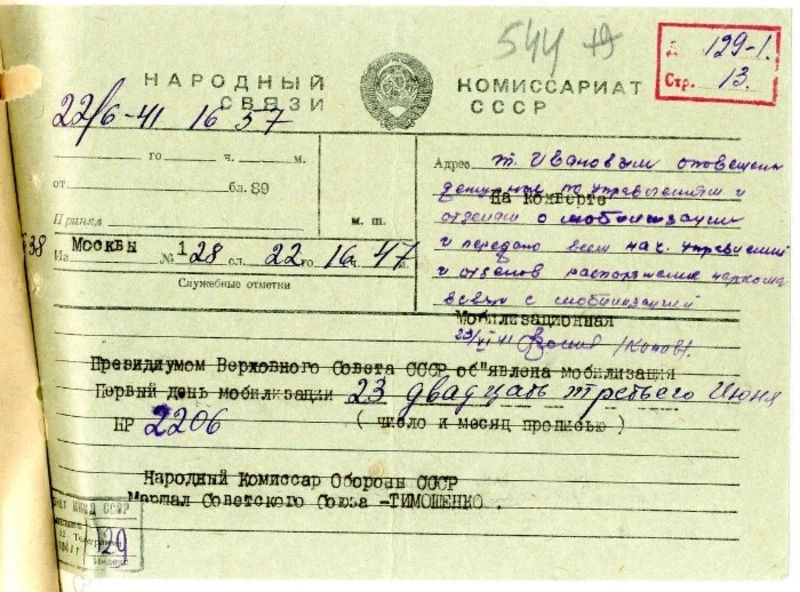 544
129-1.
Стр. 13.
НАРОДНЫЙ КОМИССАРИАТ
СВЯЗИ СССР
22/6-41 16 57
го ч. м.
от бл. 89
м. ш.
Из Москвы № 128 сл. 22 го 16 ч. 47 м.
Служебные отметки
Адрес т. Ивановым оповещены
по управлениям и
На конверте
отделам о мобилизации
и передано всем нач. управлений
и отделов распоряжение наркома
связи с мобилизацией
Мобилизационная
23/VI 41
Президиумом Верховного Совета СССР об"явлена мобилизация
Первый день мобилизации 23 двадцать третьего Июня
НР 2206 ( число и месяц прописью )
Народный Комиссар Обороны СССР
Маршал Советского Союза -ТИМОШЕНКО .
СССР
129
Индекс